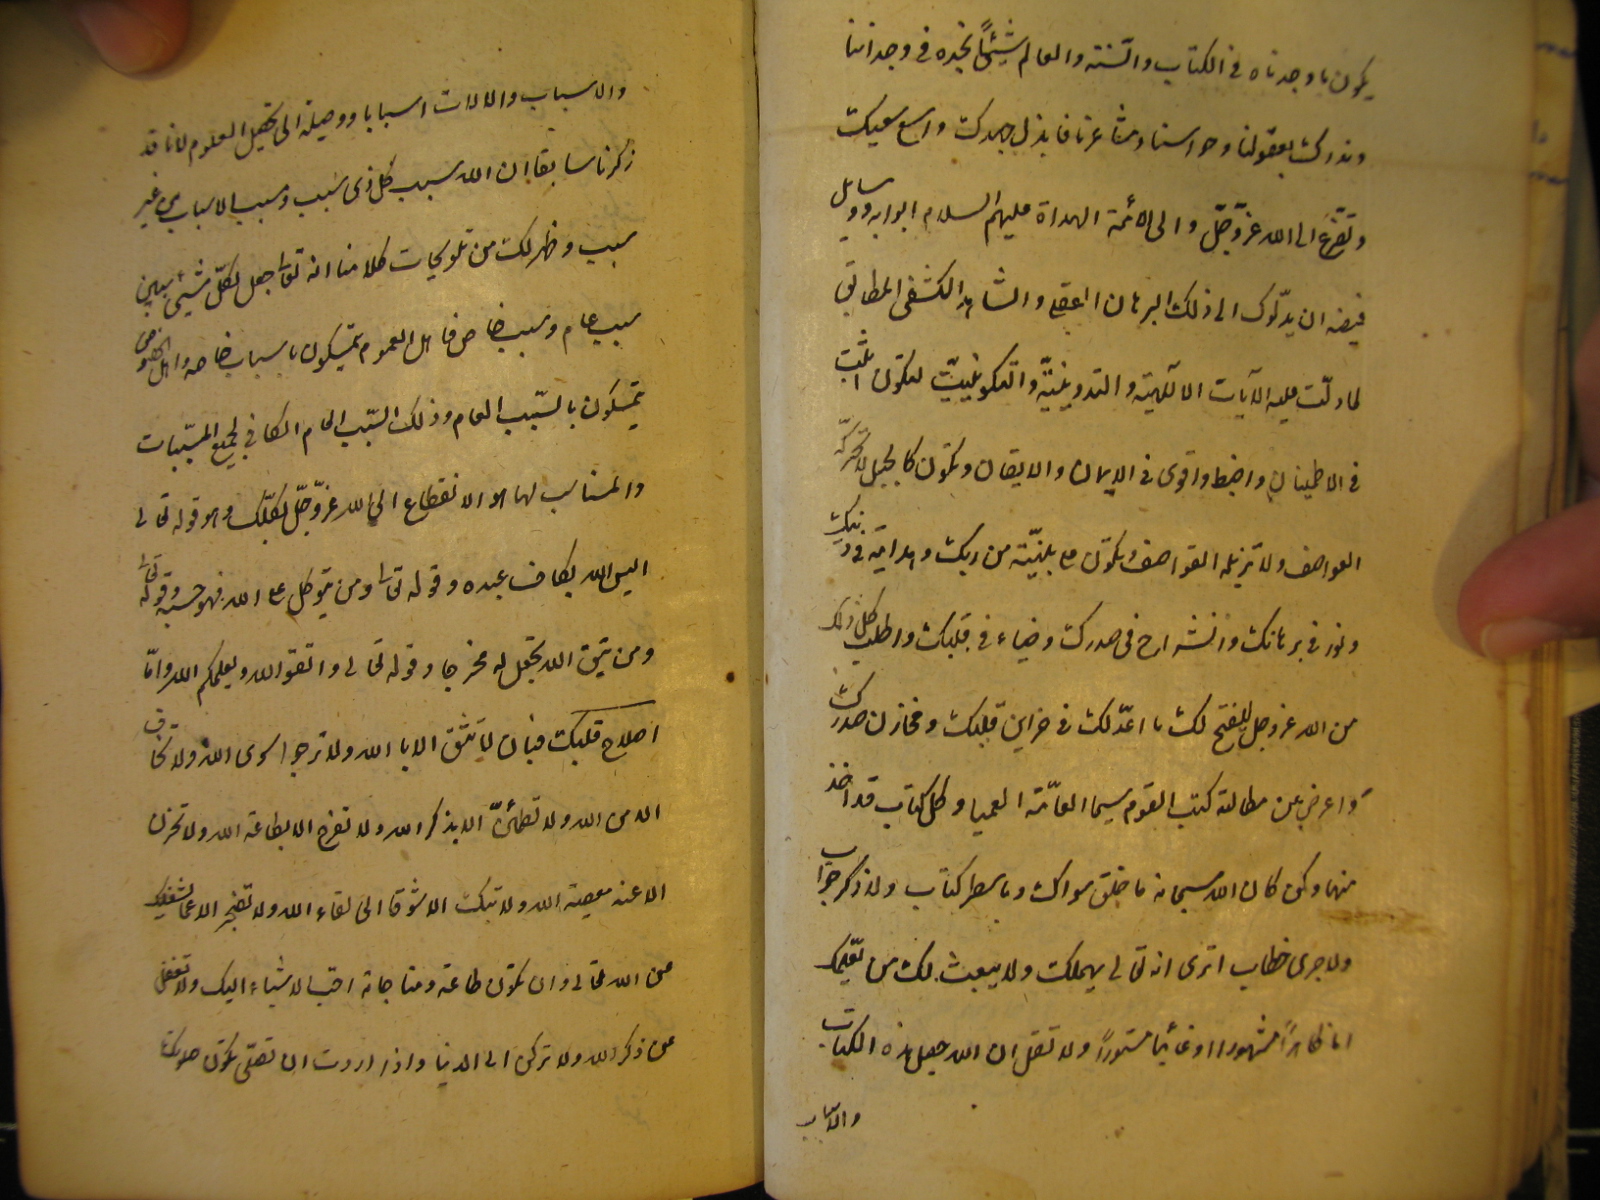 يكون ما وجدناه في الكتاب والسنة والعالم شيئاً نجده في وجداننا
وندرك بعقولنا وحواسنا ومشاعرنا فابذل جهدك واسع سعيك
وتضرّع الى الله عزّوجلّ والى الائمة الهداة عليهم السلام ابوابه ووسايل
فيضه ان يدلّوك الى ذلك البرهان العقلي والشاهد الكشفي المطابق
لما دلّت عليه الآيات الالٓهية والتدوينيّة والتكوينيّة لتكون اثبت
في الاطمينان واضبط واقوى في الايمان والايقان وتكون كالجبل لا تحركه
العواصف ولا تزيله القواصف وتكون على بيّنة من ربك وهداية في دينك
ونور في برهانك وانشراح في صدرك وضياء في قلبك واطلب كل ذلك
من الله عزوجل ليفتح لك ما اعدّ لك في خزاين قلبك ومخازن صدرك
واعرض عن مطالعة كتب القوم سيما العامّة العمياء وكل كتاب قد اخذ
منها وكن كان الله سبحانه ما خلق سواك وما سطر كتاب ولا ذكر جواب
ولا جرى خطاب اترى انه تعالى يهملك ولا يبعث لك من يعلّمك
اما ظاهراً مشهورا او غائبا مستوراً ولا تقل ان الله جعل هذه الكتاب
والاسباب
والاسباب والالات اسبابا ووصيلة الى تحصيل العلوم لانا قد
ذكرنا سابقا ان الله سبب كل ذى سبب ومسبب الاسباب من غير
سبب وظهر لك من تلويحات كلامنا انه تعا جعل لكلّ شيئى سببين
سبب عام وسبب خاص فاهل العموم يتمسكون باسباب خاصه واهل الخصوص
يتمسكون بالسّبب العام وذلك السّبب العام الكافي لجميع المسبّبات
والمناسب لها هو الانقطاع الى الله عزّوجلّ بكلك وهو قوله تعالى
اليس الله بكاف عبده وقوله تعا ومن يتوكل على الله فهو حسبه وقوله تعا
ومن يتق الله يجعل له مخرجا وقوله تعالى واتقوا الله ويعلمكم الله وامّا
اصلاح قلبك فبان لا تثق الا بالله ولا ترجوا سوى الله ولا تخاف
الا من الله ولا تطمئنّ الا بذكر الله ولا تفرح الا بطاعة الله ولا تحزن
الا عند معصية الله ولا تبك الا شوقا الى لقاء الله ولا تضجر الا عما يشغلك
عن الله تعالى وان تكون طاعته ومناجاته احبّ الاشياء اليك ولا تغفل
عن ذكر الله ولا تركن الى الدنيا واذا اردت ان تصلى تكون صلوتك